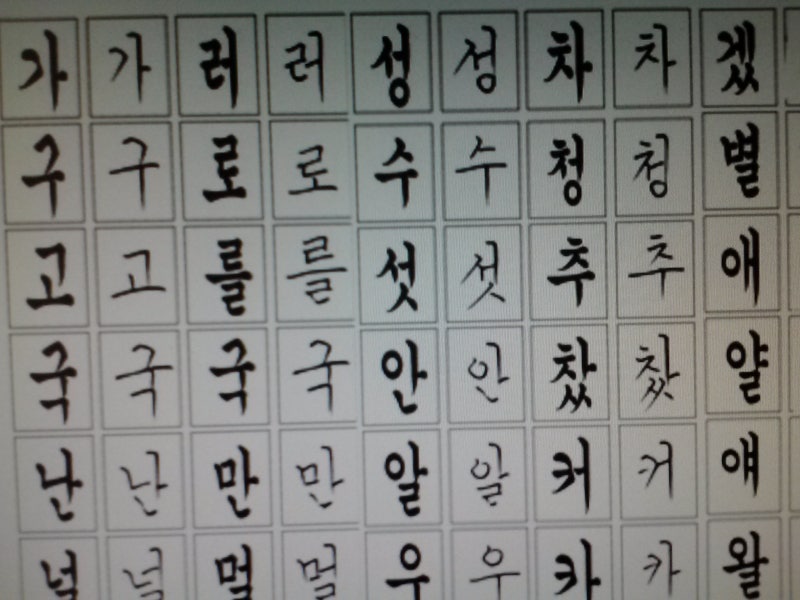 가 가 러 러 성 성 차 차 겠
구 구 로 로 수 수 청 청 별
고 고 를 를 섯 섯 추 추 애
국 국 국 국 안 안 찼 찼 얄
난 난 만 만 알 알 커 커 얘
널 널 멀 멀 우 우 카 카 왈